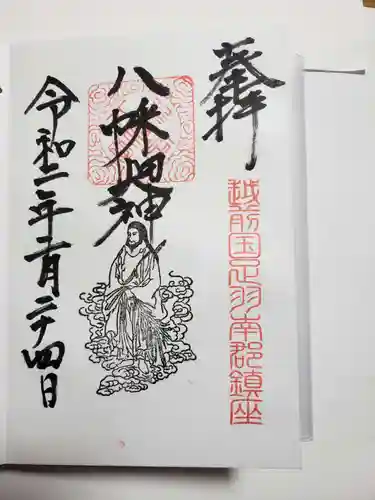 奉拝
越前国足羽南郡鎮座
八幡神
令和二年二月二十四日